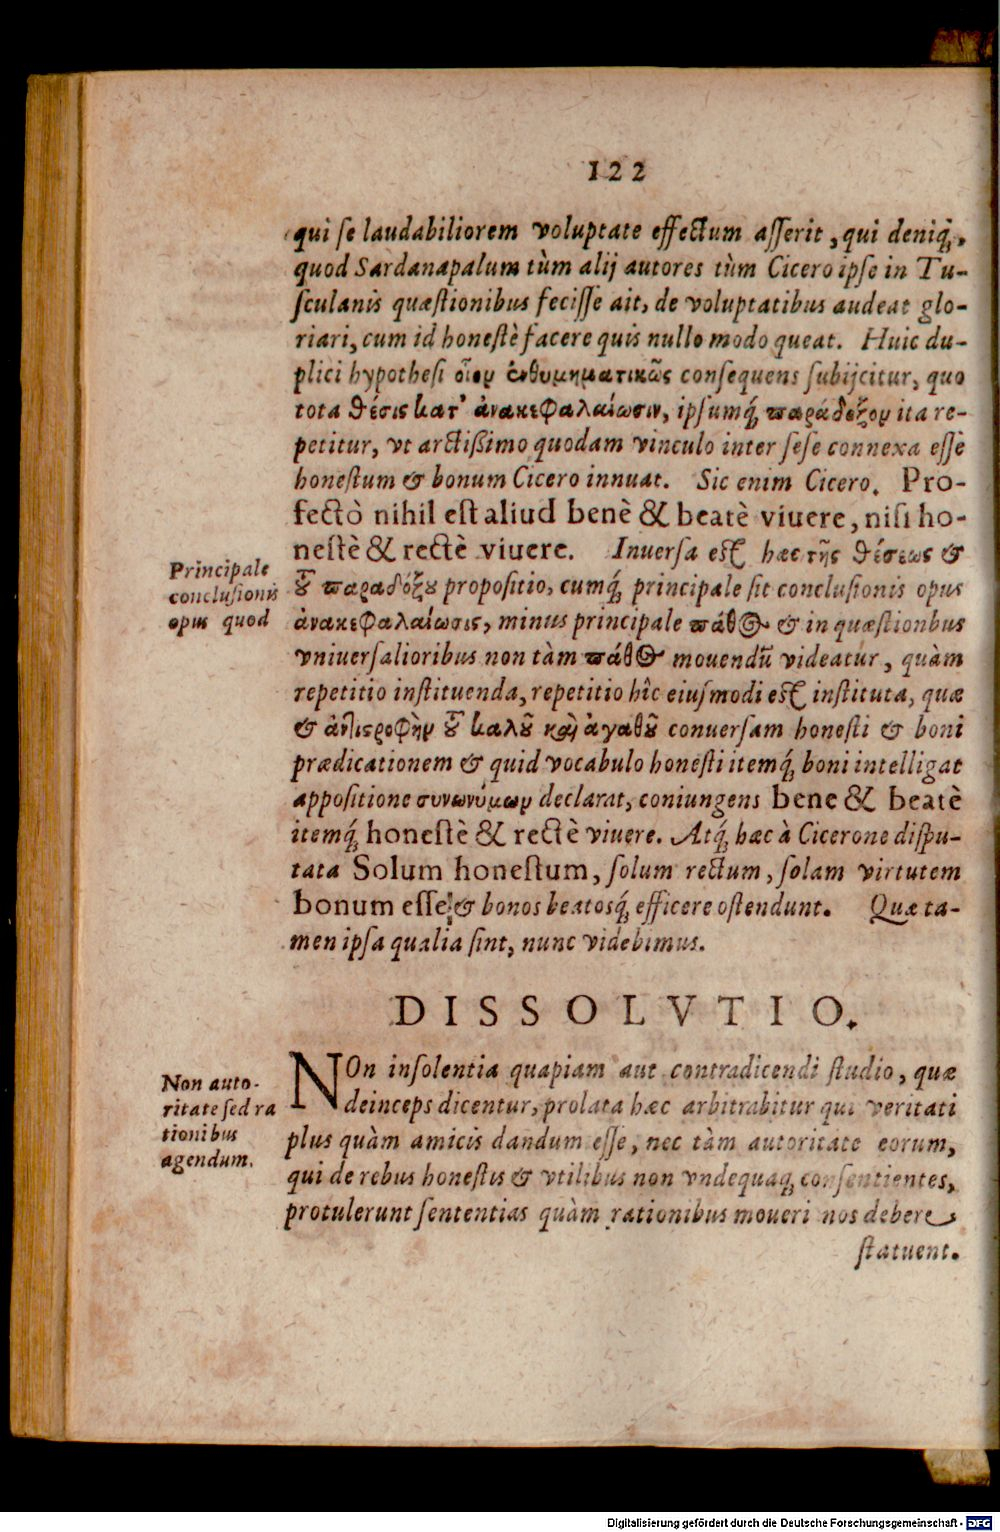 122
qui ſe laudabiliorem voluptate effectum aſſerit, qui deniq́;,
quod Sardanapalum tùm alij autores tùm Cicero ipſe in Tu-
ſculanis quæſtionibus feciſſe ait, de voluptatibus audeat glo-
riari, cum id honeſtè facere quis nullo modo queat. Huic du-
plici hypotheſi οἷον ἐνθυμηματικῶς conſequens ſubijcitur, quo
tota θέσις κατ' ἀνακεφαλαίωσιν, ipſumq́; παράδοξον ita re-
petitur, vt arctißimo quodam vinculo inter ſeſe connexa eſſe
honeſtum & bonum Cicero innuat. Sic enim Cicero. Pro-
fectò nihil eſt aliud benè & beatè viuere, niſi ho-
neſtè & rectè viuere. Inuerſa eſt hæc τῆς θέσεως &
Principale
concluſionis
opus quod
τοῦ παραδόξου propoſitio, cumq́; principale ſit concluſionis opus
ἀνακεφαλαίωσις, minus principale πάθος & in quæſtionbus
vniuerſalioribus non tàm πάθος mouendũ videatur, quàm
repetitio inſtituenda, repetitio hîc eiuſmodi eſt inſtituta, quæ
& ἀντιστροφὴν τοῦ καλοῦ καὶ ἀγαθοῦ conuerſam honeſti & boni
prædicationem & quid vocabulo honeſti itemq́; boni intelligat
appoſitione συνωνύμων declarat, coniungens bene & beatè
itemq́; honeſtè & rectè viuere. Atq́; hæc à Cicerone diſpu-
tata Solum honeſtum, ſolum rectum, ſolam virtutem
bonum eſſe & bonos beatosq́; efficere oſtendunt. Quæ ta-
men ipſa qualia ſint, nunc videbimus.
DISSOLVTIO.
Non auto-
ritate ſed ra
tionibus
agendum.
NOn inſolentia quapiam aut contradicendi ſtudio, quæ
deinceps dicentur, prolata hæc arbitrabitur qui veritati
plus quàm amicis dandum eſſe, nec tàm autoritate eorum,
qui de rebus honeſtis & vtilibus non vndequaq; conſentientes,
protulerunt ſententias quàm rationibus moueri nos debere
ſtatuent.
Digitalisierung gefördert durch die Deutsche Forschungsgemeinschaft - DFG